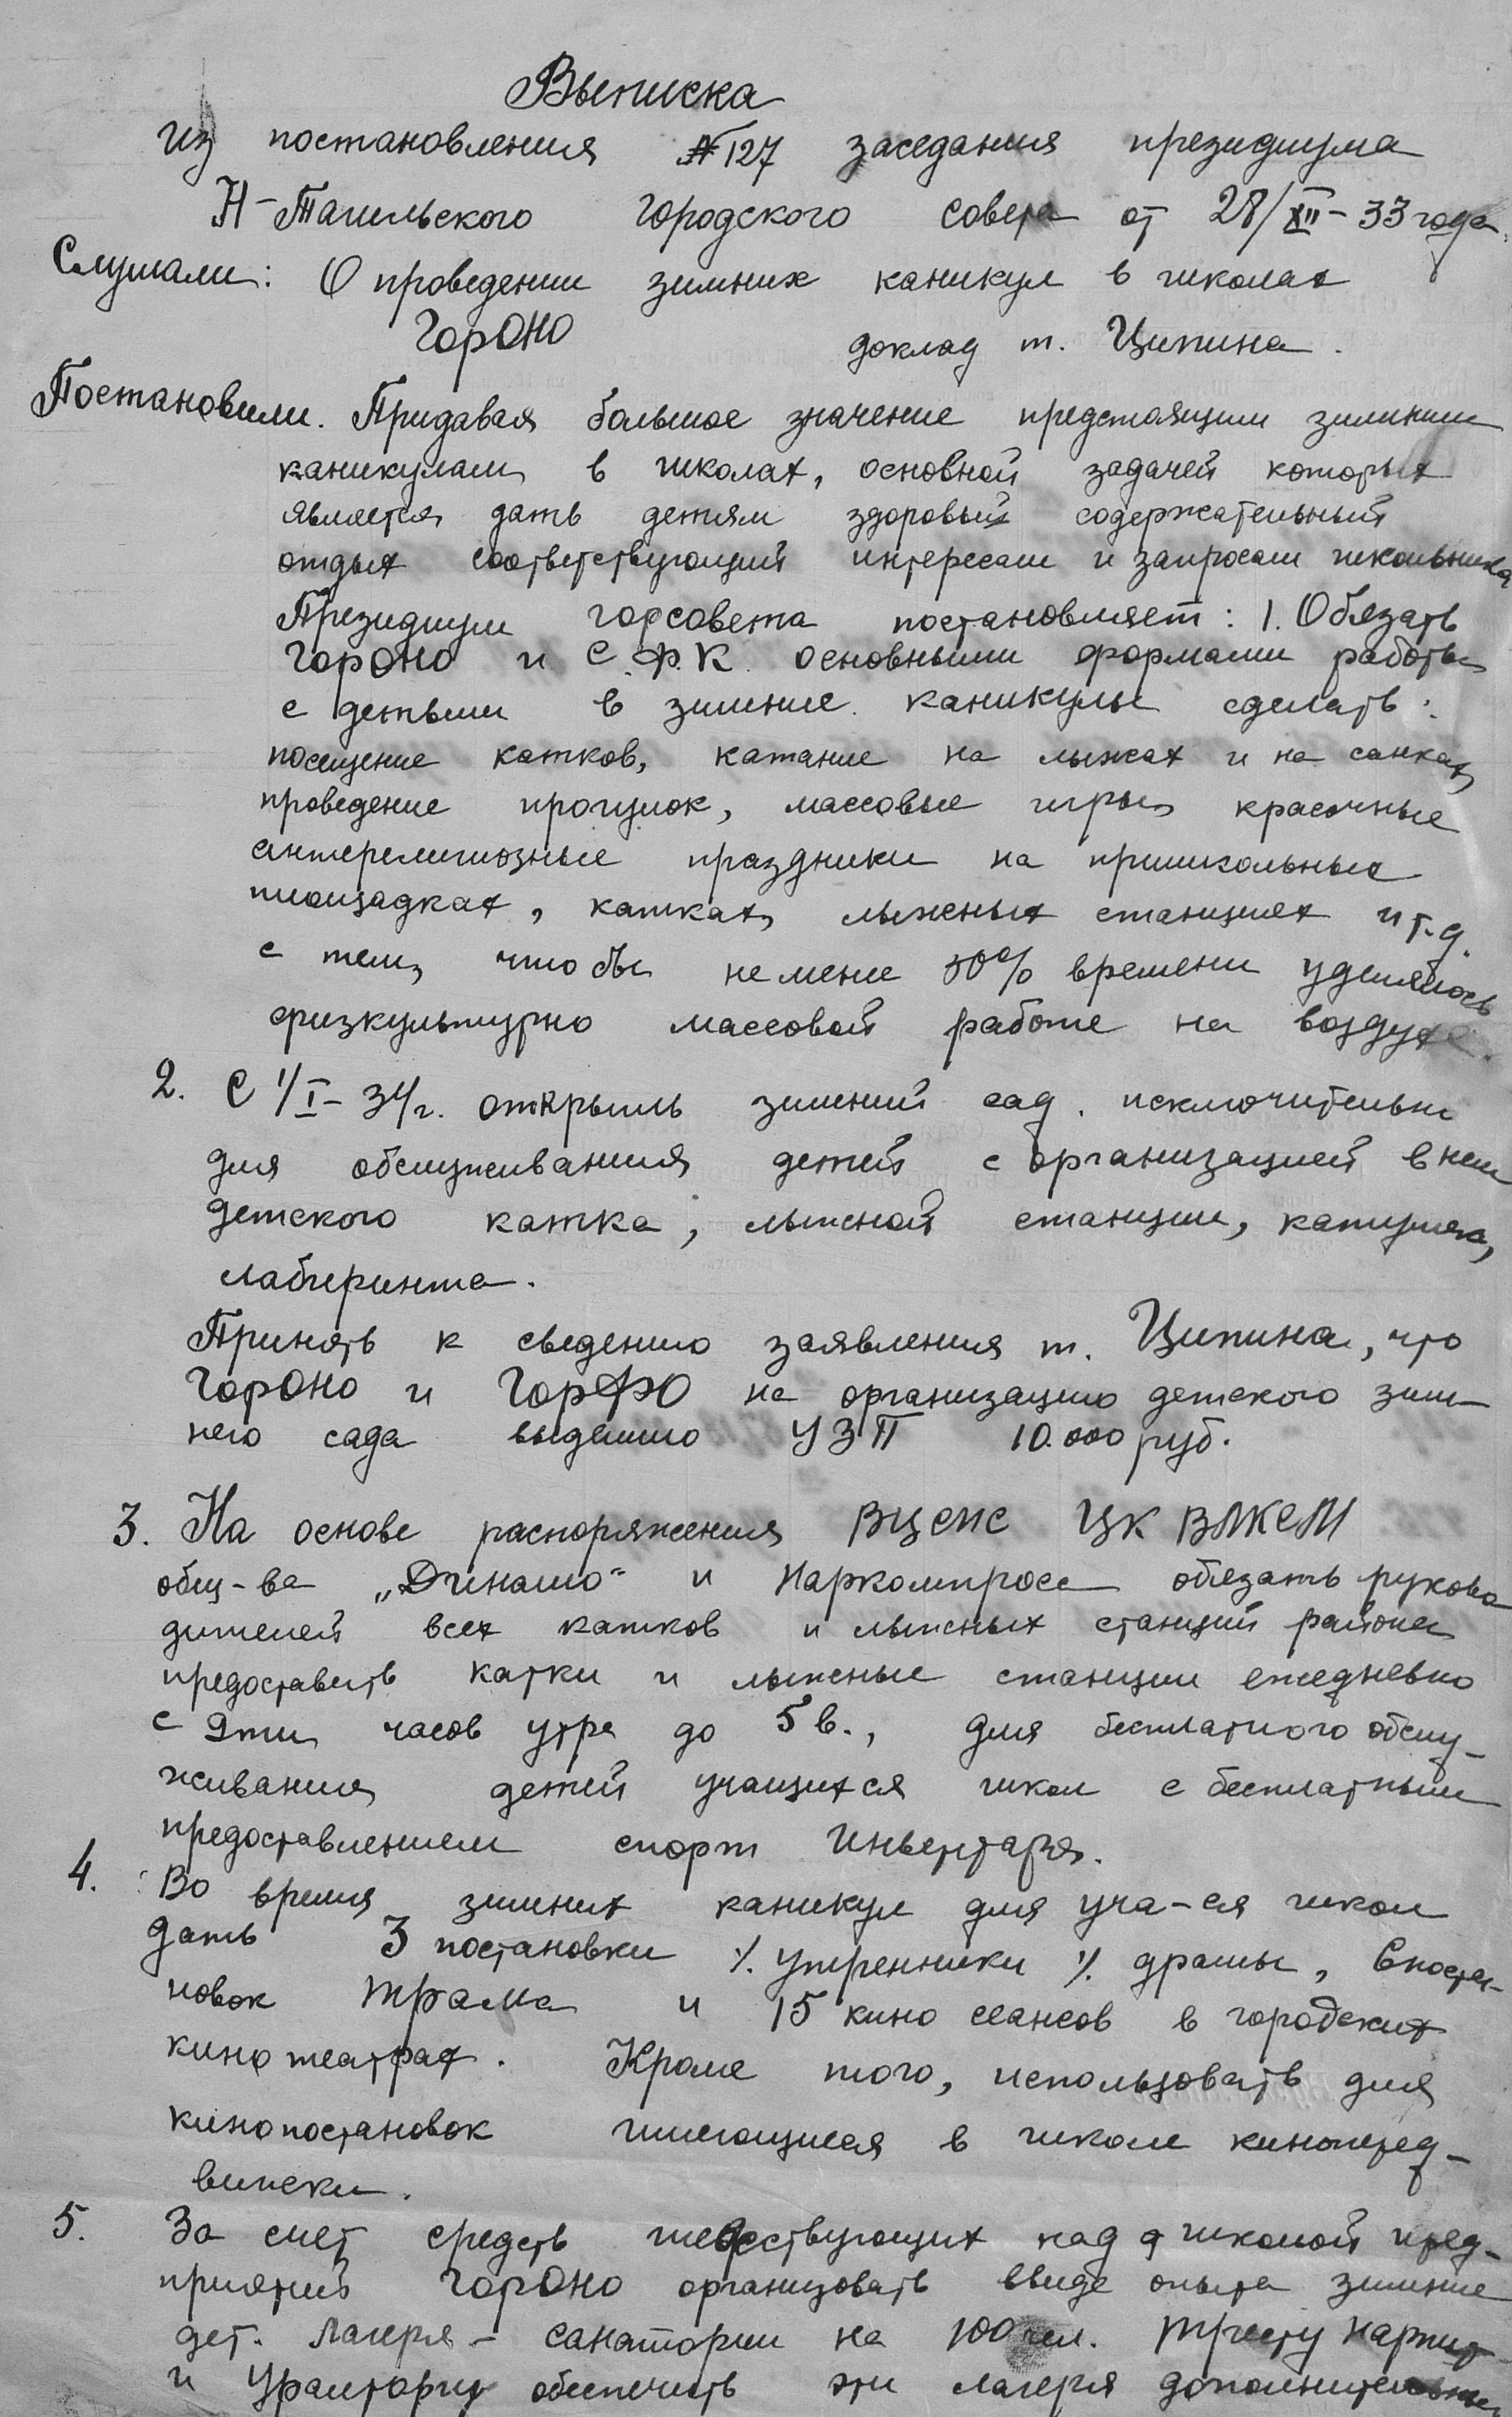 Выписка
из постановления №127 заседания президиума
Н-Тагильского городского совета от 28/XII-33 года.
Слушали: О проведении зимних каникул в школах
ГорОНО доклад т. Ципина.
Постановили. Придавая большое значение предстоящим зимним
каникулам в школах, основной задачей которых
является дать детям здоровый содержательный
отдых соответствующий интересам и запросам школьника
Президиум горсовета постановляет: 1. Обязать
ГорОНО и С.Ф.К. основными формами работы
с детьми в зимние каникулы сделать:
посещение катков, катание на лыжах и на санках,
проведение прогулок, массовые игры, красочные
антерелигиозные праздники на пришкольные
площадках, катках, лыжных станциях и т.д.
с тем, что бы не мене 50% времени уделялось
физкультурно массовой работе на воздухе.
2. С 1/I-34г. открыть зимний сад. исключительно
для обслуживания детей с организацией в нем
детского катка, лыжной станции, катушек,
лабиринта.
Принять к сведению заявления т. Ципина, что
ГорОНО и ГорФО на организацию детского зим-
него сада выделило УЗП 10.000 руб.
3. На основе распоряжения ВЦСПС ЦК ВЛКСМ
общ-ва „Динамо" и Наркомпроса обязать руково
дителей всех катков и лыжных станций района
предоставить катки и лыжные станции ежедневно
с 9ти часов утра до 5 в., для бесплатного обслу-
живания детей учащихся школ с бесплатным
предоставлением спорт инвентаря.
4. Во время зимних каникул для уча-ся школ
дать 3 постановки утренники драмы, 6 поста-
новок Трама и 15 кино сеансов в городских
кино театрах. Кроме того, использовать для
кинопостановок имеющиеся в школе киноперед-
вижки.
5. За счет средств шефствующих над школой пред-
приятий ГорОНО организовать ввиде опыта зимние
дет. лагеря - санатории на 100 чел. Тресту Нарпит
и Уралторгу обеспечить эти лагеря дополнительным